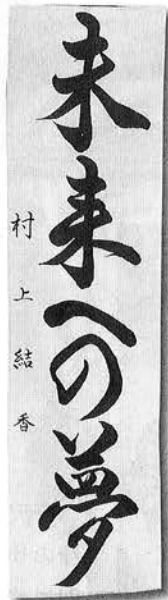 未来への夢
村上結香